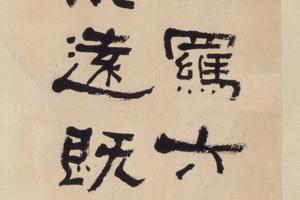 羅六
遠既